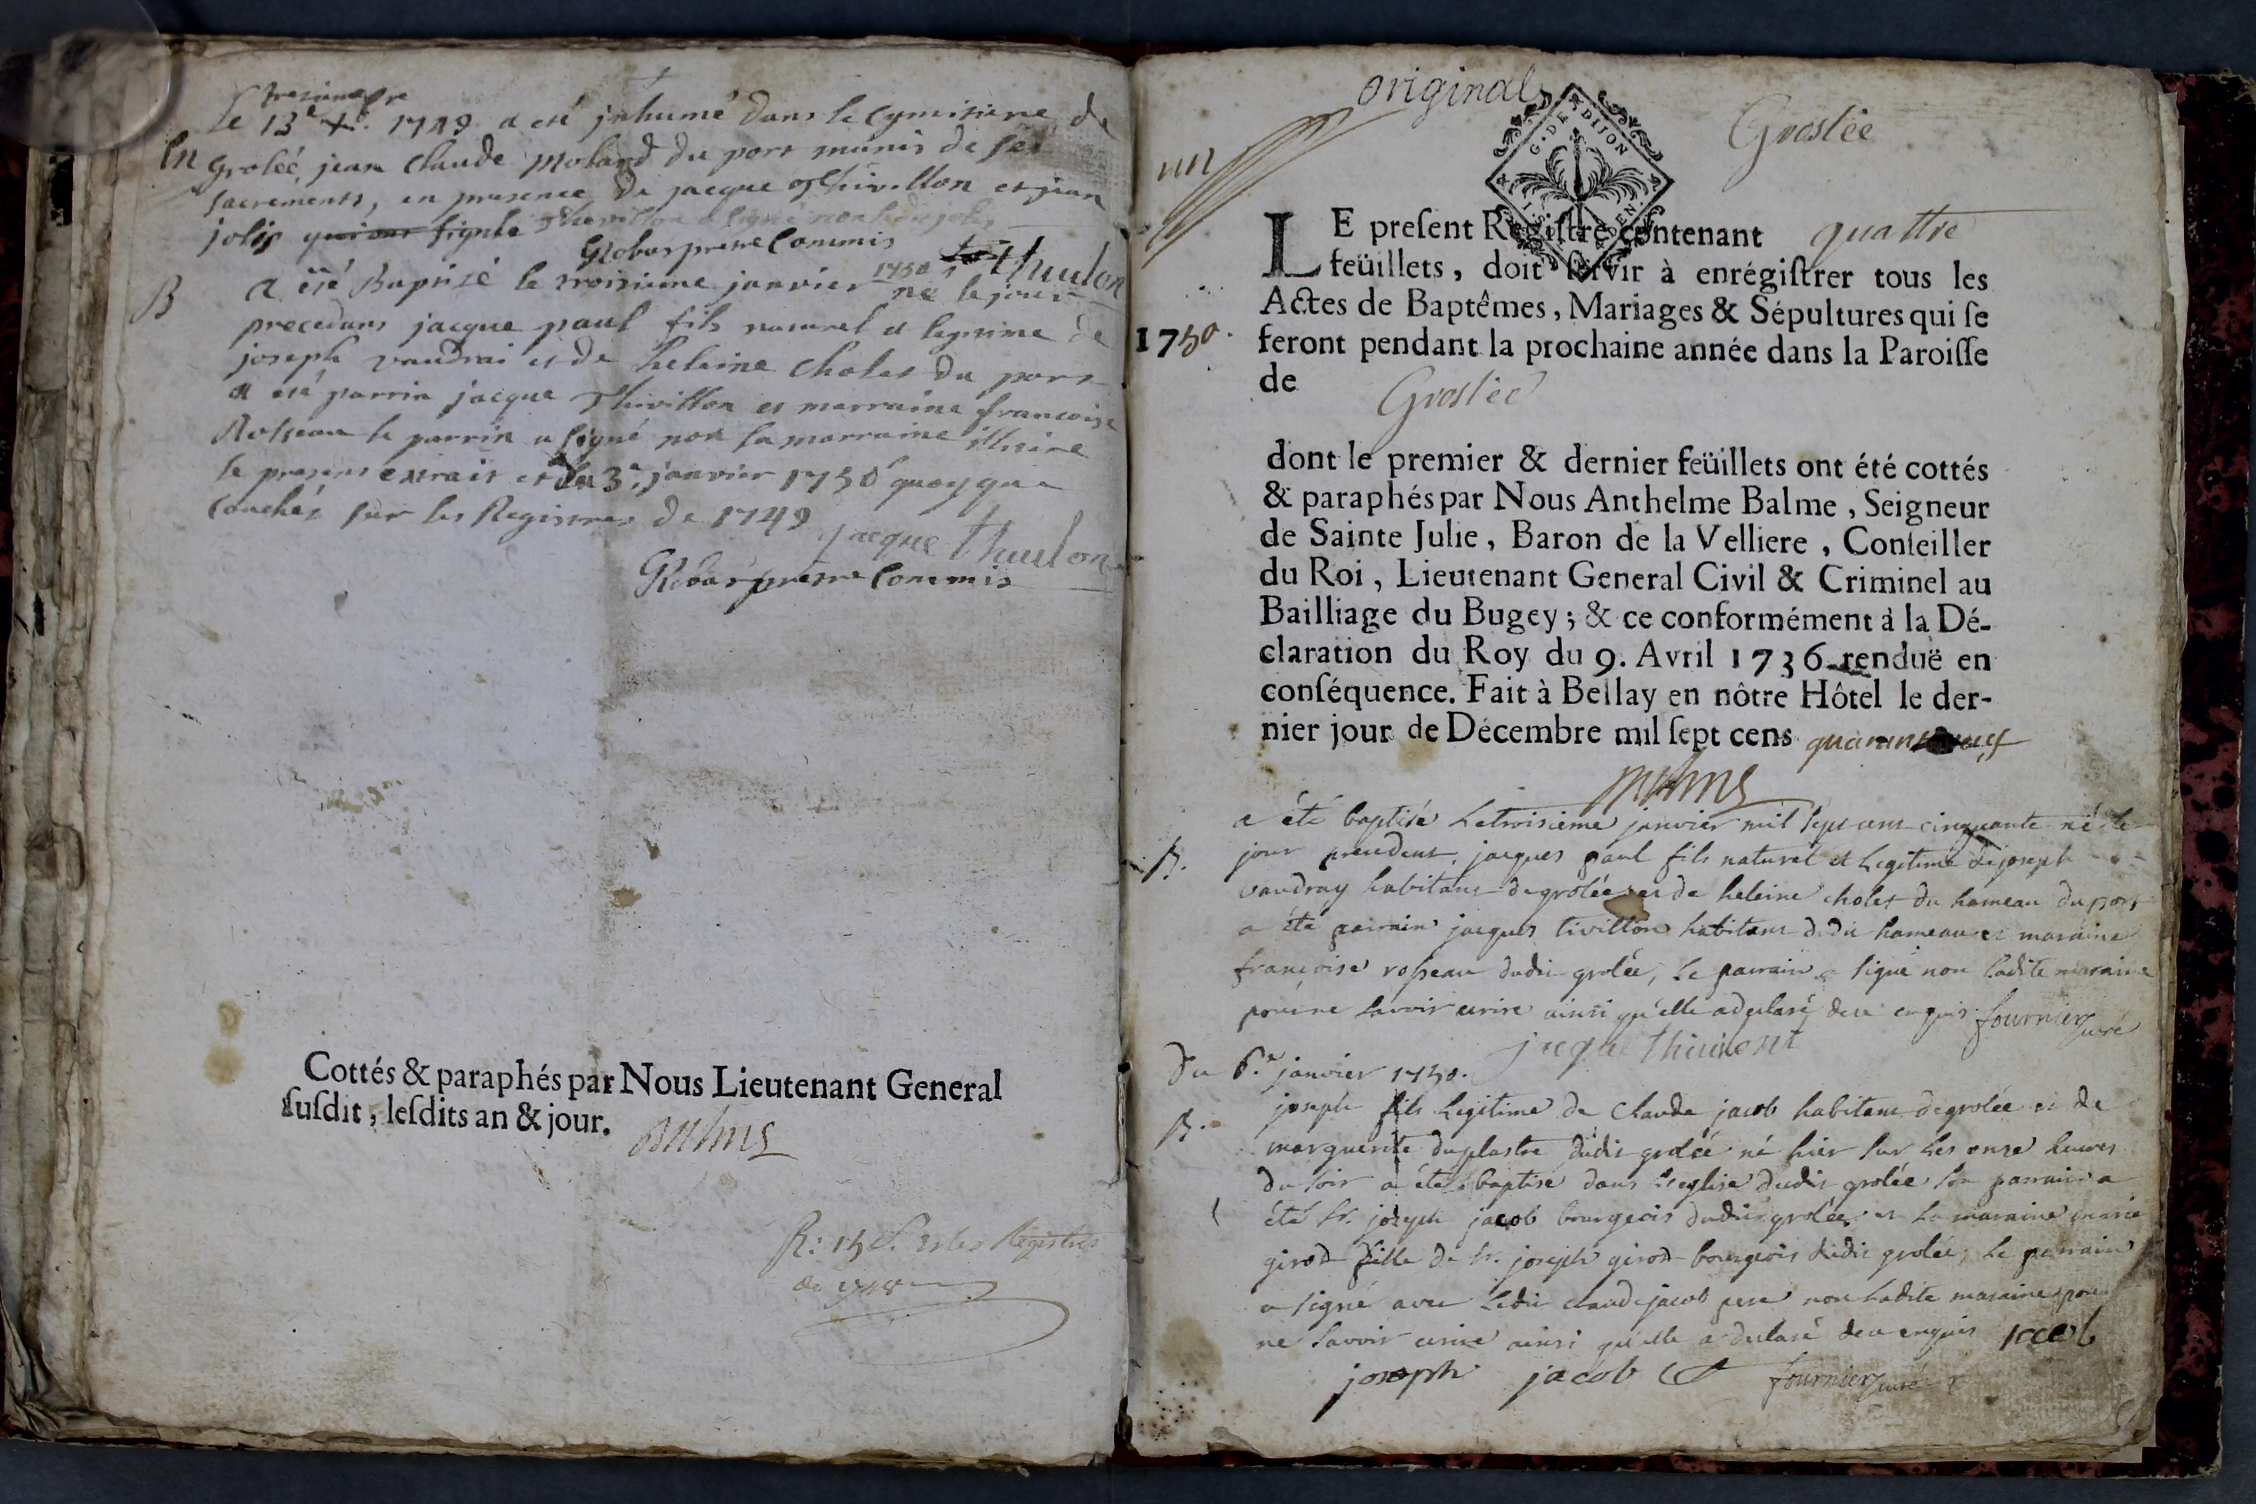 Le 13e Xe. 1749 a eté jnhumé dans le Cymitiere de
En
grolée, jean Claude molard du port munis de ses
sacrements, en presence de jacque Thivillon et jean
jolis qui ont signés
Robas pretre Commis
thuulon
B
a été Baptisé le troisieme janvier 1750 né le jour
precedans jacque paul fils naturel et legitime de
joseph vaudrai et de heleine Cholet du port
a été parrin jacque Thivillon et marraine francoise
Rosseau le parrin a signé non la marraine illitire
le present extrait est du 3e. janvier 1750 quoy que
Couchéz sur les Registres de 1749
jacque thuulon
Robas pretre Commis
Cottés & paraphés par Nous Lieutenant General
susdit, lesdits an & jour.
Balme
original
Groslée
G. DE DIJON
LE present Registre contenant quattre
feüillets, doit servir à enrégistrer tous les
Actes de Baptêmes, Mariages & Sépultures qui se
1750.
feront pendant la prochaine année dans la Paroisse
de Groslée
dont le premier & dernier feüillets ont été cottés
& paraphés par Nous Anthelme Balme, Seigneur
de Sainte Julie, Baron de la Velliere, Conseiller
du Roi, Lieutenant General Civil & Criminel au
Bailliage du Bugey; & ce conformément à la Dé-
claration du Roy du 9. Avril 1736 renduë en
conséquence. Fait à Bellay en nôtre Hôtel le der-
nier jour de Décembre mil sept cens quarante neuf
Balme
a été baptisé le troisieme janvier mil sept cent cinquante né le
B.
jour precedent, jacques paul fils naturel et legitime de joseph
vaudray habitant de grolée et de heleine cholet du hameau du port
a été parrain jacques tivillon habitant dudit hameau et maraine
françoise rosseau dudit grolée, le parrain a signé non ladite maraine
pour ne savoir ecrire ainsi qu'elle a declaré de ce enquis fournier curé
jacque thiuilont
Du 6.e janvier 1750.
B.
joseph fils legitime de Claude jacob habitant de grolée et de
marguerite duplastre dudit grolée né hier sur les onze heures
du soir a été baptisé dans l'eglise dudit grolée son parrain a
été sr. joseph jacob bourgeois dudit grolée et la maraine marie
girod fille de sr. joseph girod bourgeois dudit grolée, le parrain
a signé avec ledit claude jacob pere non ladite maraine pour
ne savoir ecrire ainsi qu'elle a declaré de ce enquis jacob
joseph jacob fournier curé